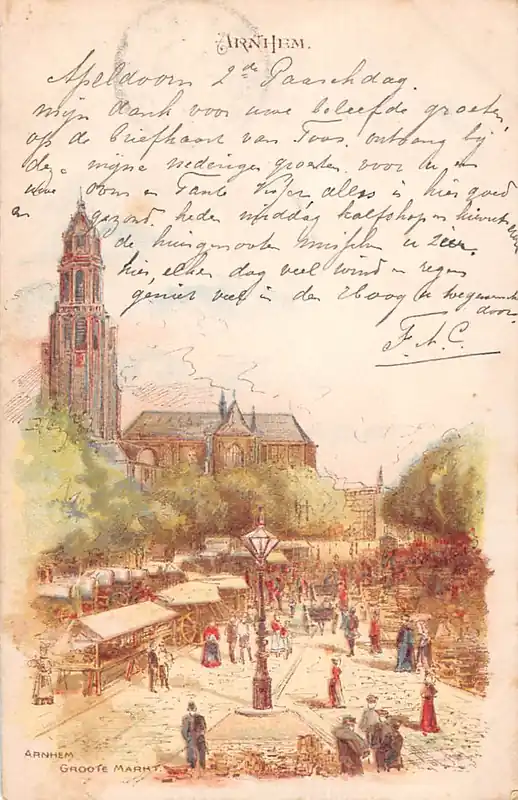 ARNHEM.
Apeldoorn 2de Paaschdag.
mijn dank voor uwe beleefde groeten,
op de briefkaart van Toos. ontvang bij
deze mijne nederige groeten. voor u en
uwe Oom en Tante alles is hier goed
en gezond. heden middag
de huisgenooten missen u zeer.
hier, elken dag veel wind en regen
geniet veel in den Haag
door.
F. A. C.
ARNHEM
GROOTE MARKT.